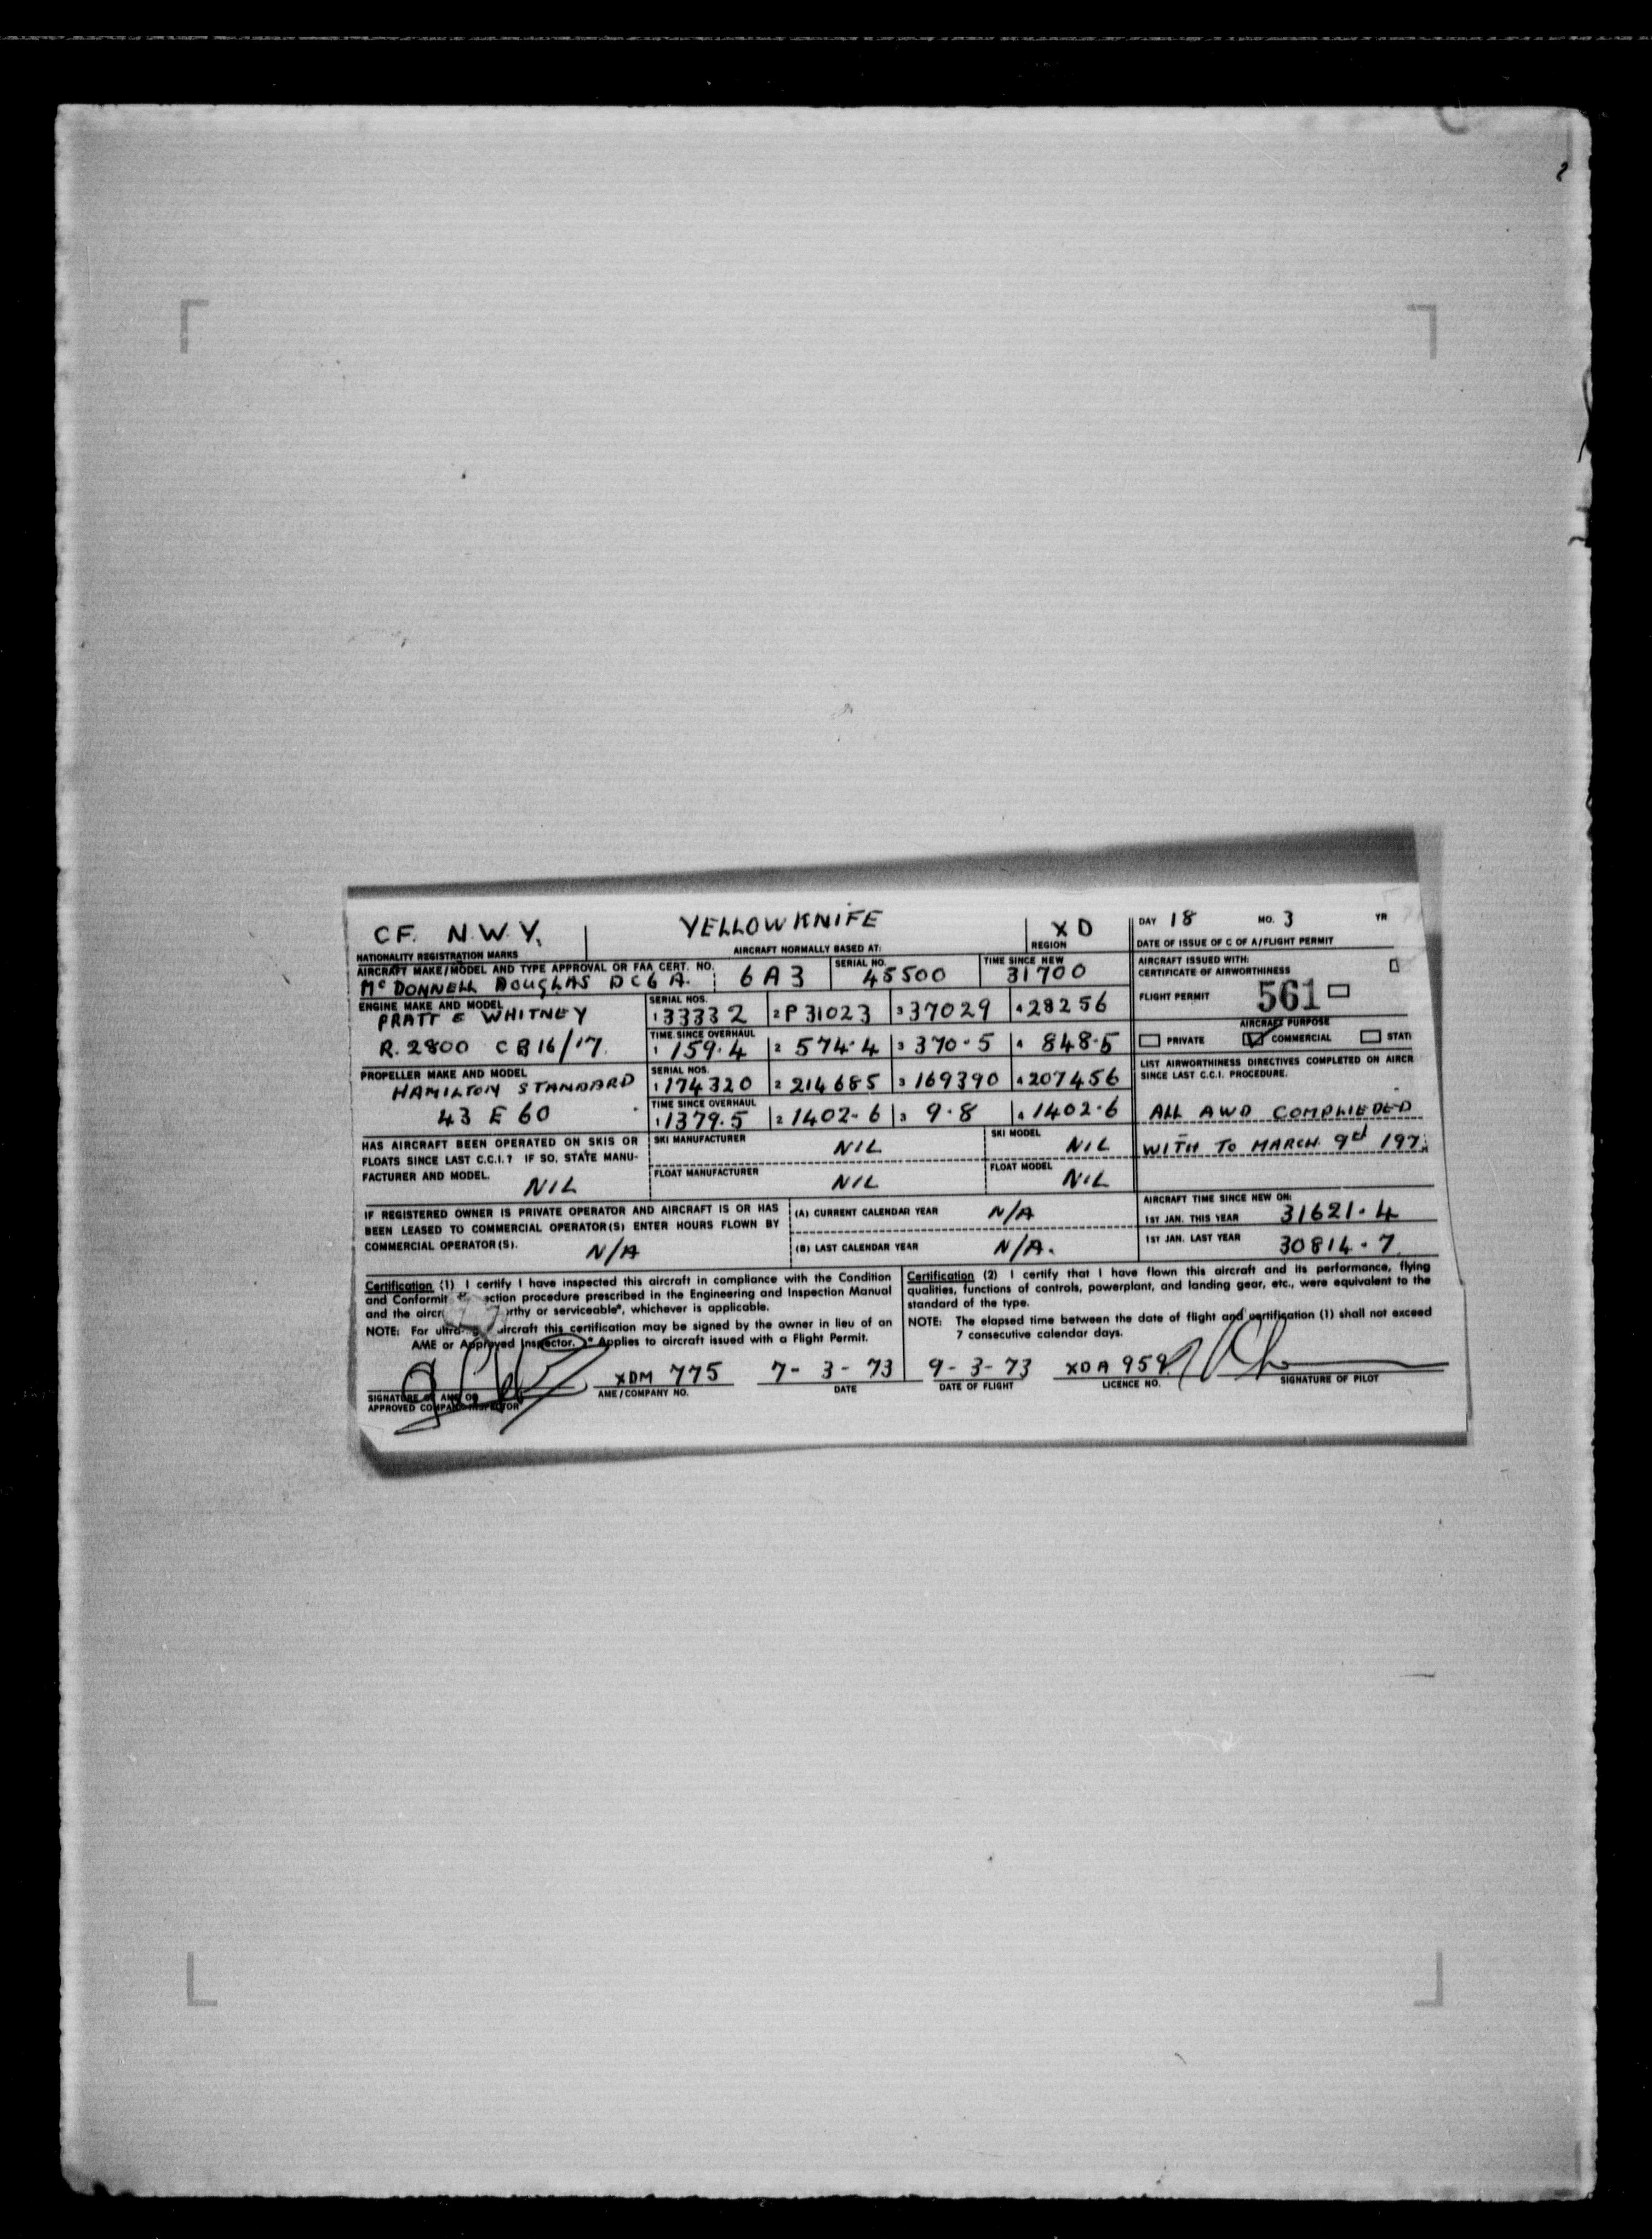 CF. N.W.Y. YELLOWKNIFE XD DAY 18 MO. 3 YR
NATIONALITY REGISTRATION MARKS AIRCRAFT NORMALLY BASED AT: REGION DATE OF ISSUE OF C OF A/FLIGHT PERMIT
AIRCRAFT MAKE/MODEL AND TYPE APPROVAL OR FAA CERT. NO. SERIAL NO. TIME SINCE NEW AIRCRAFT ISSUED WITH:
McDONNELL DOUGLAS DC6A. 6A3 45500 31700 CERTIFICATE OF AIRWORTHINESS
ENGINE MAKE AND MODEL SERIAL NOS. FLIGHT PERMIT 561
PRATT & WHITNEY 1 33332 2 P31023 3 37029 4 28256
TIME SINCE OVERHAUL AIRCRAFT PURPOSE
R.2800 CB16/17. 1 159.4 2 574.4 3 370.5 4 848.5 PRIVATE COMMERCIAL STATE
PROPELLER MAKE AND MODEL SERIAL NOS. LIST AIRWORTHINESS DIRECTIVES COMPLETED ON AIRCR
HAMILTON STANDARD 1 174320 2 214685 3 169390 4 207456 SINCE LAST C.C.I. PROCEDURE.
TIME SINCE OVERHAUL
43 E 60 1 1379.5 2 1402.6 3 9.8 4 1402.6 ALL AWD COMPLIEDED
HAS AIRCRAFT BEEN OPERATED ON SKIS OR SKI MANUFACTURER NIL SKI MODEL NIL WITH TO MARCH 9th 197
FLOATS SINCE LAST C.C.I.? IF SO, STATE MANU-
FACTURER AND MODEL. NIL FLOAT MANUFACTURER NIL FLOAT MODEL NIL
AIRCRAFT TIME SINCE NEW ON:
IF REGISTERED OWNER IS PRIVATE OPERATOR AND AIRCRAFT IS OR HAS (A) CURRENT CALENDAR YEAR N/A 1ST JAN. THIS YEAR 31621.4
BEEN LEASED TO COMMERCIAL OPERATOR(S) ENTER HOURS FLOWN BY
COMMERCIAL OPERATOR(S). N/A (B) LAST CALENDAR YEAR N/A. 1ST JAN. LAST YEAR 30814.7
Certification (1) I certify I have inspected this aircraft in compliance with the Condition
and Conformit ection procedure prescribed in the Engineering and Inspection Manual
and the aircr rthy or serviceable*, whichever is applicable.
NOTE: For ultra- aircraft this certification may be signed by the owner in lieu of an
AME or Approved Inspector. * Applies to aircraft issued with a Flight Permit.
Certification (2) I certify that I have flown this aircraft and its performance, flying
qualities, functions of controls, powerplant, and landing gear, etc., were equivalent to the
standard of the type.
NOTE: The elapsed time between the date of flight and certification (1) shall not exceed
7 consecutive calendar days.
XDM 775 7-3-73 9-3-73 XDA 959
SIGNATURE OF AME OR AME/COMPANY NO. DATE DATE OF FLIGHT LICENCE NO. SIGNATURE OF PILOT
APPROVED COMPANY INSPECTOR